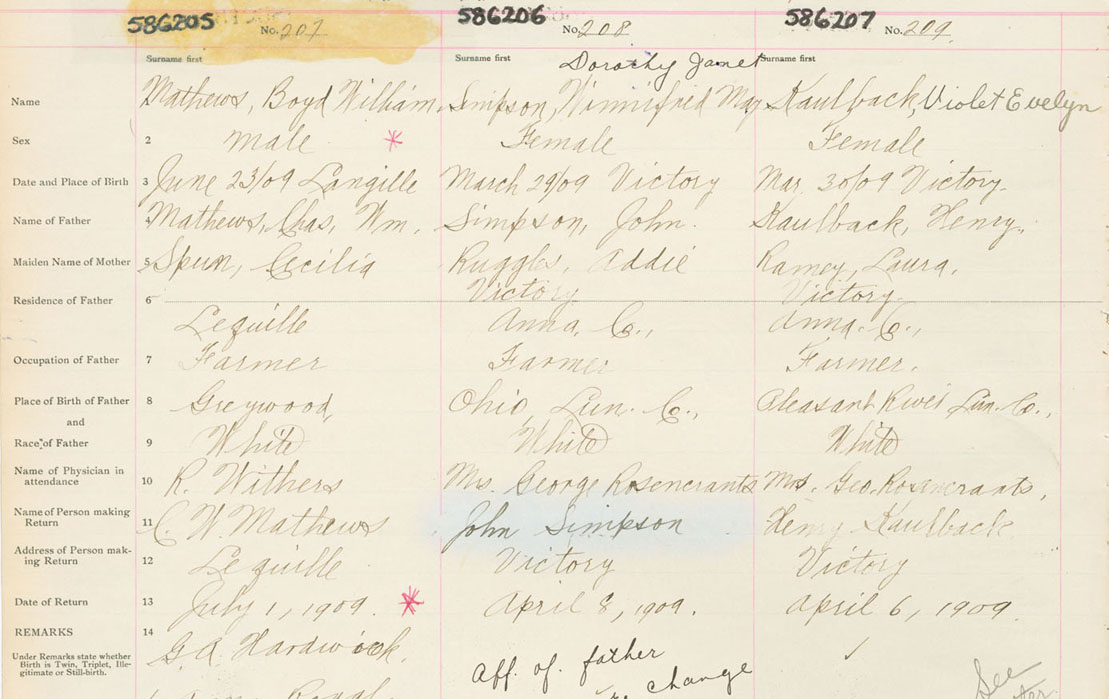 586205 586206 586207
No. 207 No. 208 No. 209
Surname first Surname first Dorothy Janet Surname first
Name Mathews, Boyd William. Simpson, Winnifred May Kaulback, Violet Evelyn
Sex 2 male * Female Female
Date and Place of Birth 3 June 23/09 Langille March 29/09 Victory Mar. 30/09 Victory.
Name of Father 4 Mathews, Chas, Wm. Simpson, John. Kaulback, Henry.
Maiden Name of Mother 5 Spun, Cecilia Ruggles, Addie Ramey, Laura.
Victory Victory
Residence of Father 6
Lequille Anna. Co., Anna. Co.,
Occupation of Father 7 Farmer Farmer Farmer.
Place of Birth of Father 8 Greywood, Ohio, Lun. Co., Pleasant River Lun. Co.,
and
Race of Father 9 White White White
Name of Physician in
attendance 10 R. Withers Mrs. George Rosencrants Mrs. Geo. Rosencrants,
Name of Person making
Return 11 C. W. Mathews John Simpson Henry Kaulback
Address of Person mak-
ing Return 12 Lequille Victory Victory
Date of Return 13 July 1, 1909. * April 8, 1909. April 6, 1909
REMARKS 14 G. A. Hardwick.
Under Remarks state whether
Birth is Twin, Triplet, Ille-
gitimate or Still-birth.
Aff. of father
change
See